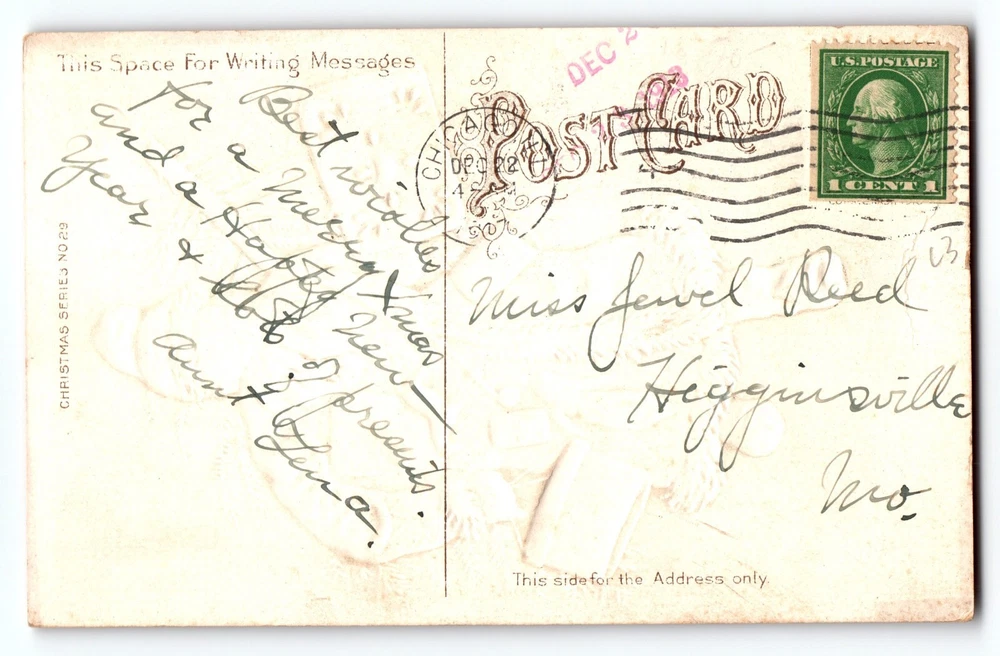 This Space For Writing Messages
Best wishes
for a Merry Xmas
and a Happy New
Year & lots of presents.
Aunt Lena.
CHRISTMAS SERIES NO 29
POST CARD
DEC 2
CHICAGO
DEC 22
U.S. POSTAGE
1 CENT 1
Miss Jewel Reed
Higginsville
Mo.
This side for the Address only.